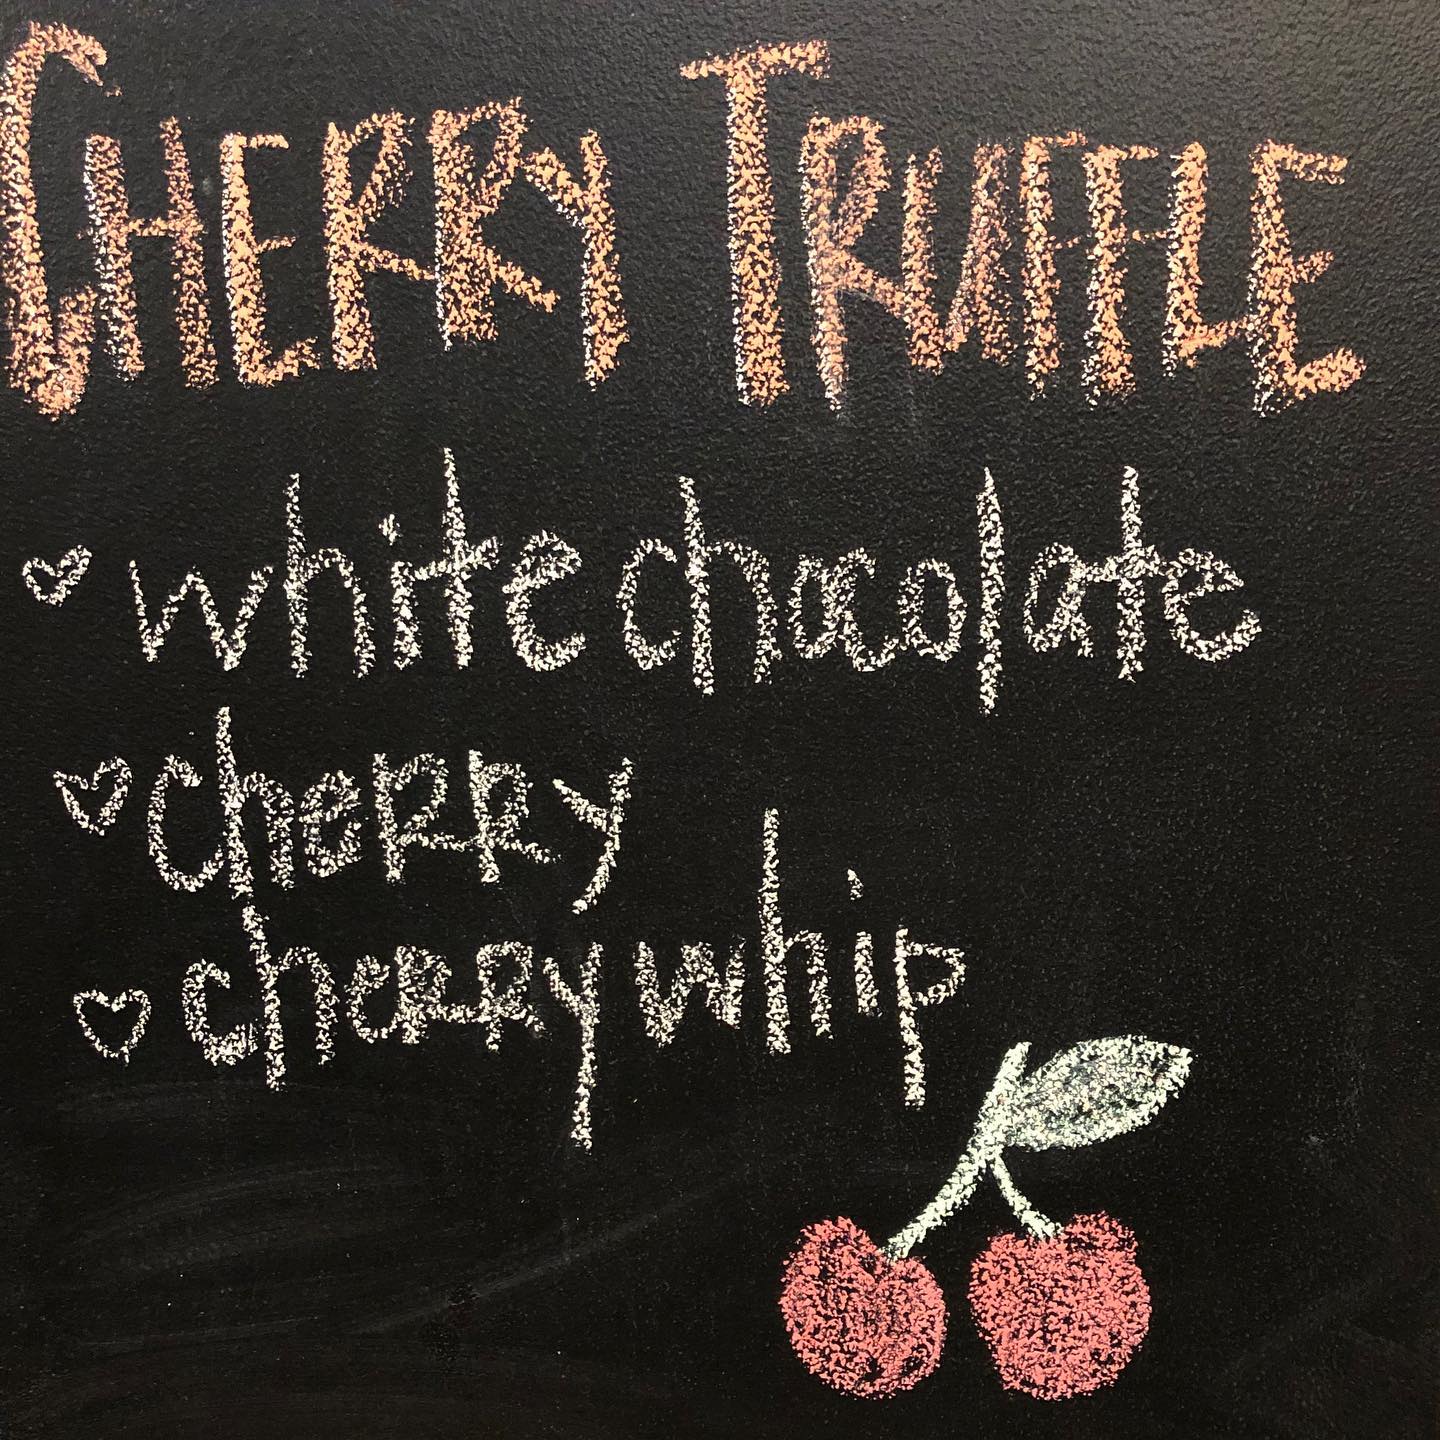 CHERRY TRUFFLE
white chacolate
cherry
cherry whip